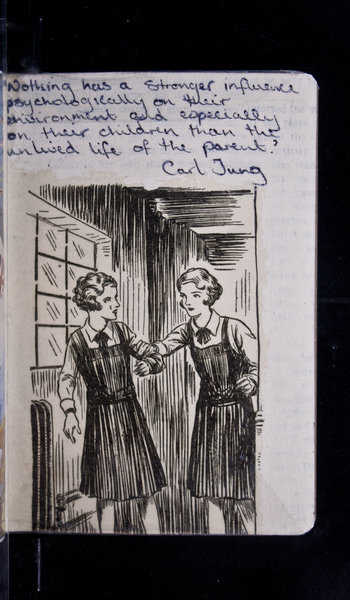 'Nothing has a stronger influence
psychologically on their
environment and especially
on their children than the
unlived life of the parent.'
Carl Jung